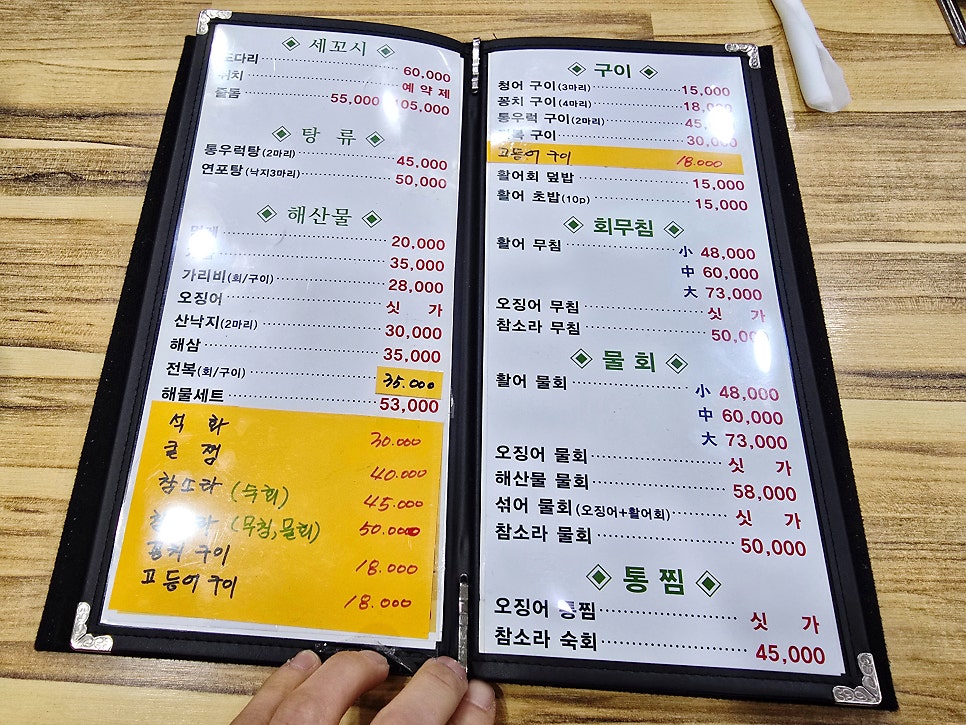 ◈ 세꼬시 ◈
도다리 60,000
쥐치 예 약 제
줄돔 55,000 105,000
◈ 탕 류 ◈
통우럭탕(2마리) 45,000
연포탕(낙지3마리) 50,000
◈ 해산물 ◈
20,000
35,000
가리비(회/구이) 28,000
오징어 싯 가
산낙지(2마리) 30,000
해삼 35,000
전복(회/구이) 35.000
해물세트 53,000
석 화 30.000
굴 찜 40.000
참소라 (숙회) 45.000
참소라 (무침,물회) 50.000
꽁치 구이 18.000
고등어 구이 18.000
◈ 구이 ◈
청어 구이(3마리) 15,000
꽁치 구이(4마리) 18,000
통우럭 구이(2마리) 45,
구이 30,000
고등어 구이 18.000
활어회 덮밥 15,000
활어 초밥(10p) 15,000
◈ 회무침 ◈
활어 무침 小 48,000
中 60,000
大 73,000
오징어 무침 싯 가
참소라 무침 50,000
◈ 물 회 ◈
활어 물회 小 48,000
中 60,000
大 73,000
오징어 물회 싯 가
해산물 물회 58,000
섞어 물회(오징어+활어회) 싯 가
참소라 물회 50,000
◈ 통 찜 ◈
오징어 통찜 싯 가
참소라 숙회 45,000